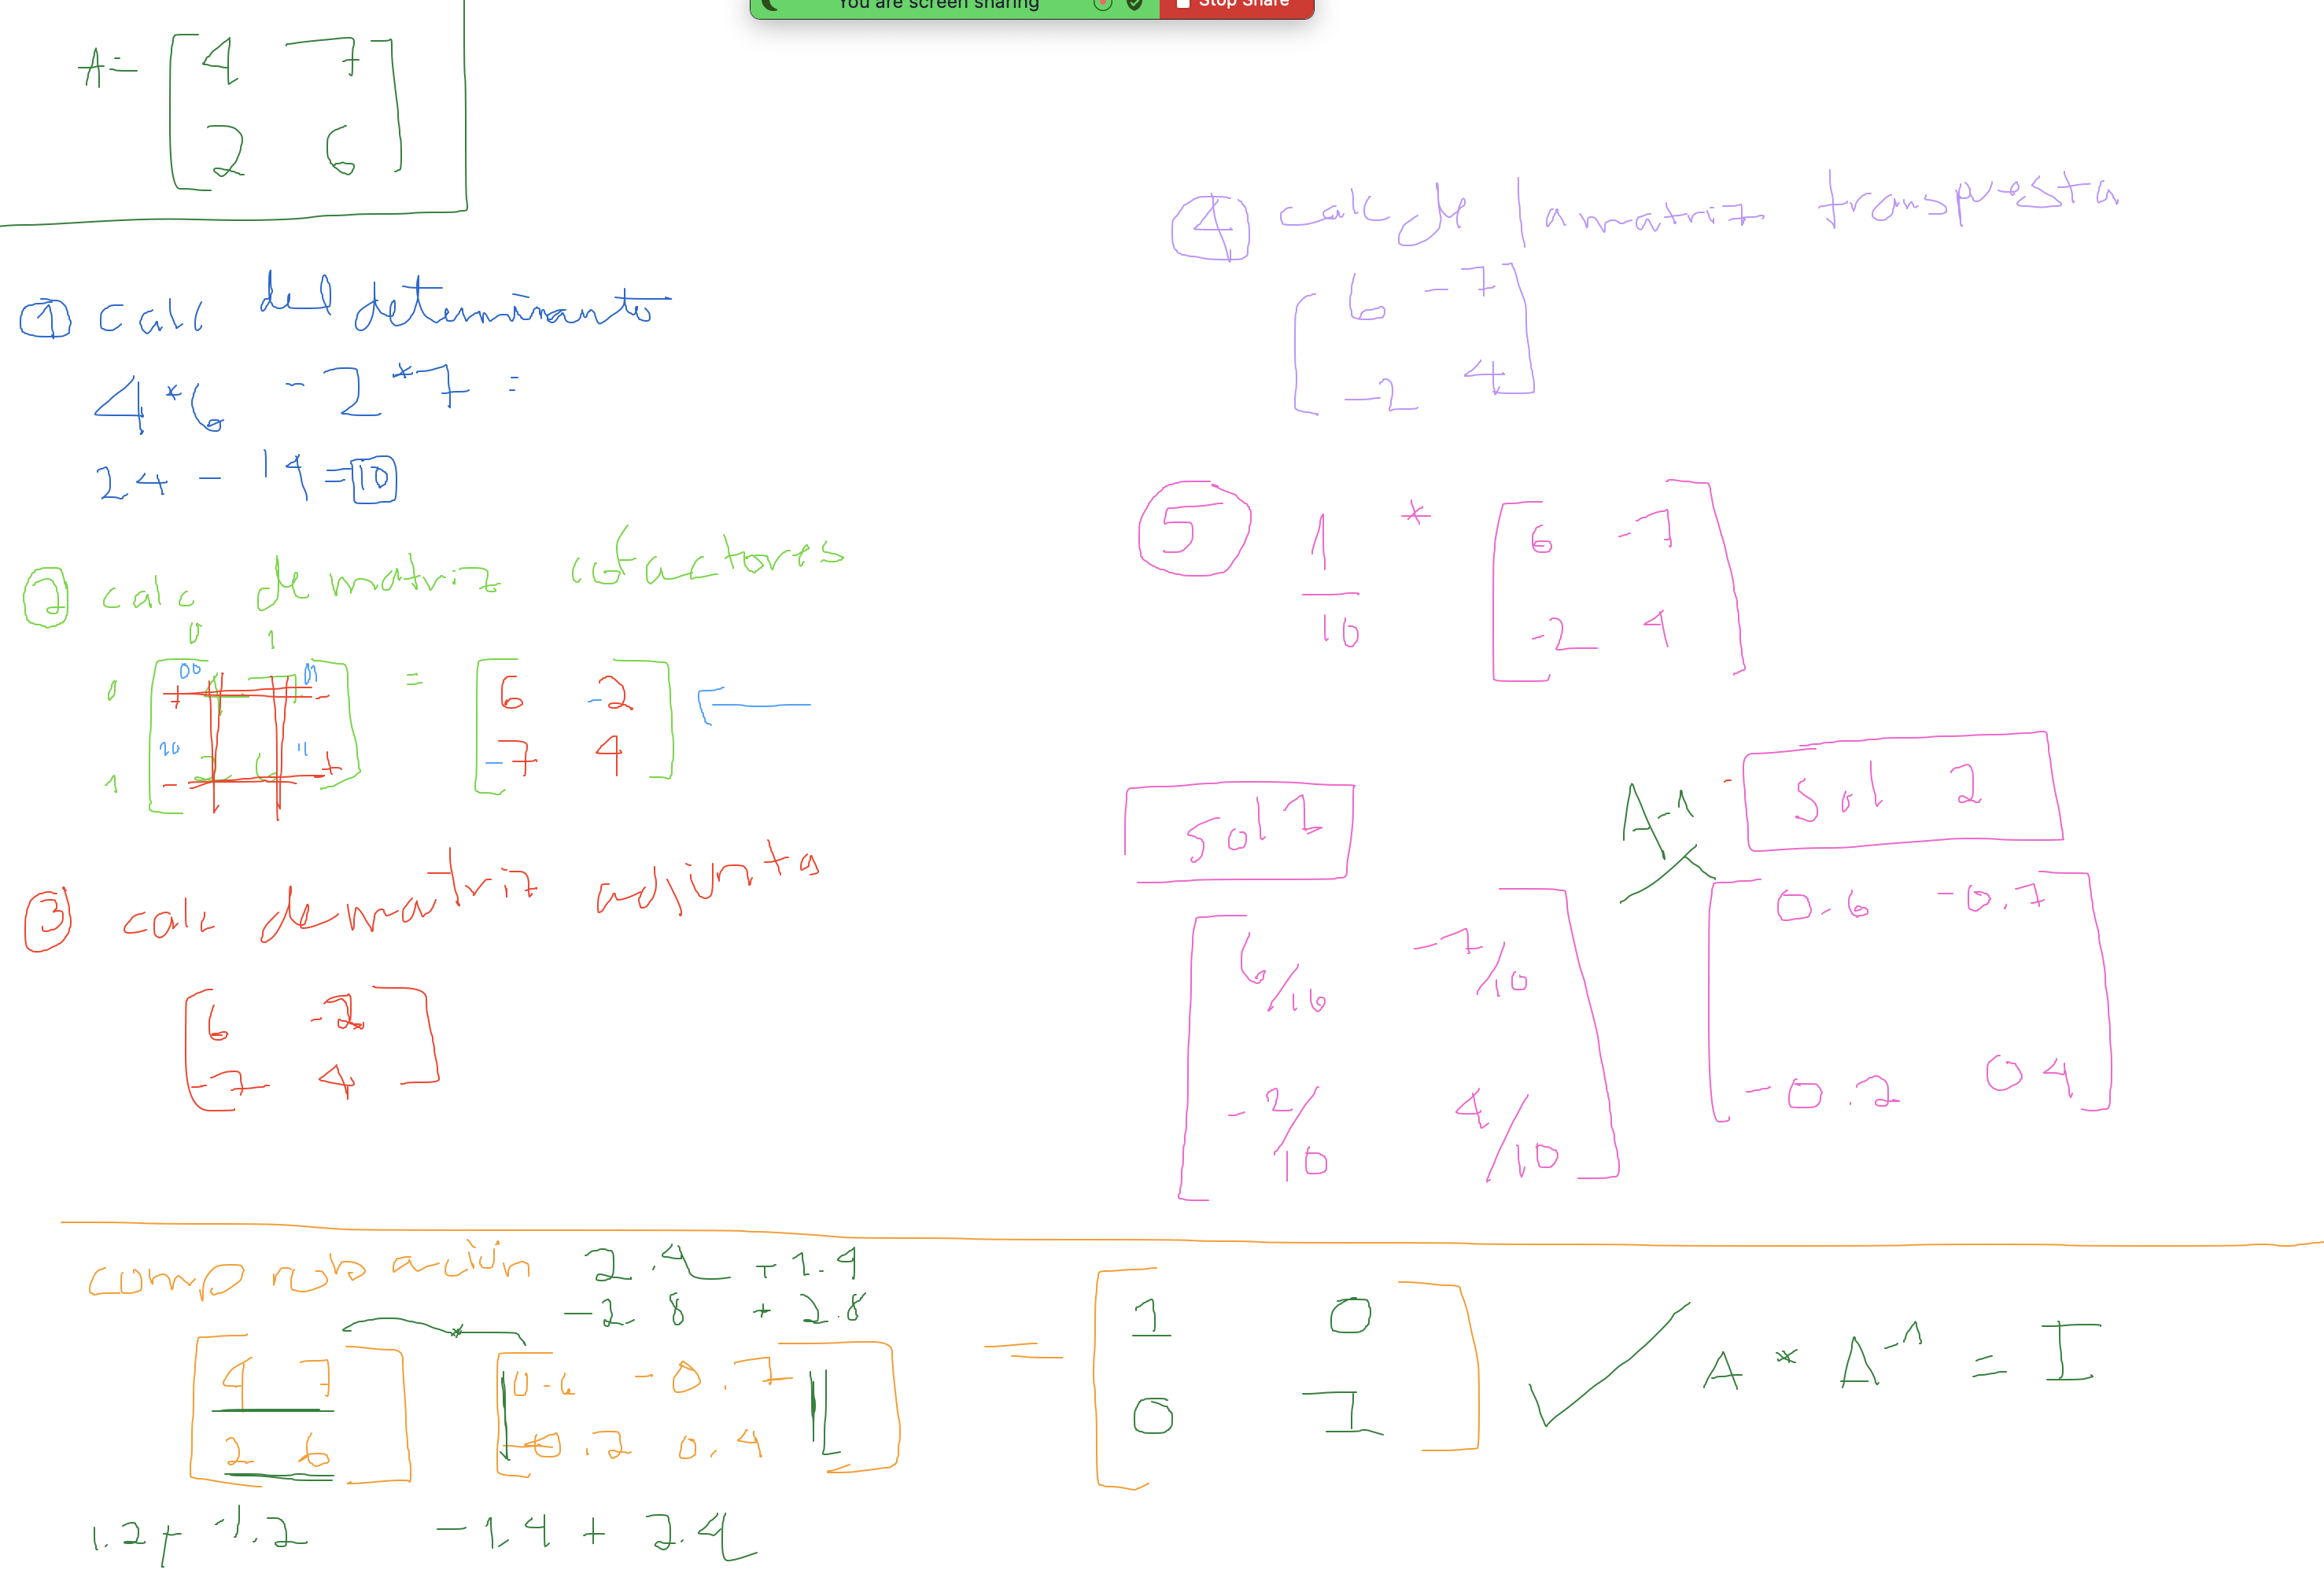 You are screen sharing
Stop Share
A=
4 7
2 6
1 calc del determinante
4*6 -2*7 =
24 - 14 = 10
2 calc de matriz cofactores
0 1
0 00 01
+ -
1 10 11
- +
= 6 -2
-7 4
3 calc de matriz adjunta
6 -2
-7 4
4 calc de la matriz transpuesta
6 -7
-2 4
5 1/10 * 6 -7
-2 4
sol 1
6/10 -7/10
-2/10 4/10
A-1
sol 2
0.6 -0.7
-0.2 0.4
comprobación
2.4 -1.4
-2.8 +2.8
4 7 * 0.6 -0.7
2 6 -0.2 0.4
= 1 0
0 1
A * A-1 = I
1.2+ -1.2 -1.4 + 2.4